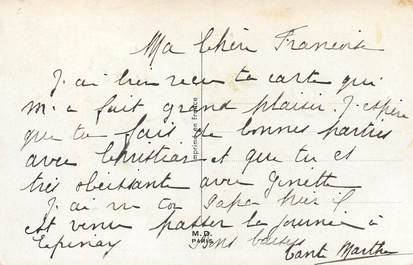 Ma chère Francoise
J'ai bien recu ta carte qui
m'a fait grand plaisir. J'espère
que tu fais de bonnes parties
avec Christian et que tu es
très obeissante avec Ginette
J'ai vu ton Papa hier il
est venu passer la journée à
Epinay Bons baisers
Tante Marthe
Imprimé en France
M.D.
PARIS